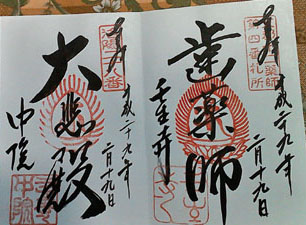 奉拝
平成二十九年
二月十九日
第四番札所
歯薬師
壬生寺
奉拝
平成二十九年
二月十九日
大悲殿
中院